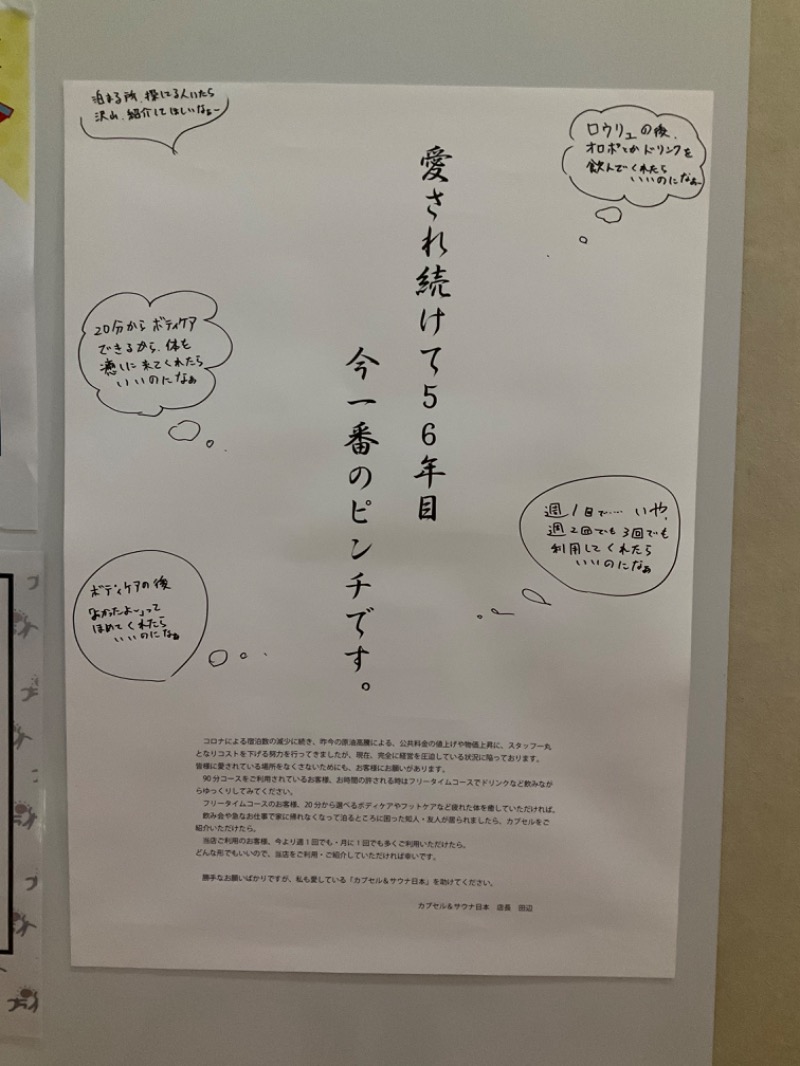 泊まる所、探してる人いたら
沢山、紹介してほしいなぁー
ロウリュの後、
オロポとかドリンクを
飲んでくれたら
いいのになぁ~
愛され続けて56年目
今一番のピンチです。
20分からボディケア
できるから、体を
癒しに来てくれたら
いいのになぁ
週1回で…… いや、
週2回でも3回でも
利用してくれたら
いいのになぁ
ボディケアの後
「よかったよー」って
ほめてくれたら
いいのになぁ
コロナによる宿泊数の減少に続き、昨今の原油高騰による、公共料金の値上げや物価上昇に、スタッフ一丸
となりコストを下げる努力を行ってきましたが、現在、完全に経営を圧迫している状況に陥っております。
皆様に愛されている場所をなくさないためにも、お客様にお願いがあります。
90分コースをご利用されているお客様、お時間の許される時はフリータイムコースでドリンクなど飲みなが
らゆっくりしてみてください。
フリータイムコースのお客様、20分から選べるボディケアやフットケアなど疲れた体を癒していただければ。
飲み会や急なお仕事で家に帰れなくなって泊るところに困った知人・友人が居られましたら、カプセルをご
紹介いただけたら。
当店ご利用のお客様、今より週1回でも・月に1回でも多くご利用いただけたら。
どんな形でもいいので、当店をご利用・ご紹介していただければ幸いです。
勝手なお願いばかりですが、私も愛している「カプセル&サウナ日本」を助けてください。
カプセル&サウナ日本 店長 田辺